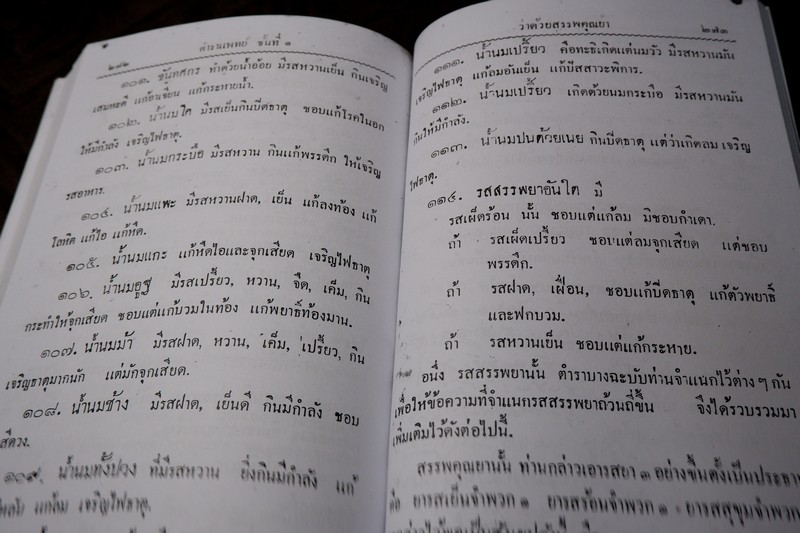 ๒๘๒ ตำราแพทย์ ชั้นที่ ๑
๑๐๑. ขันทศกร ทำด้วยน้ำอ้อย มีรสหวานเย็น กินเจริญ
เสมหะดี แก้อาเจียน แก้กระหายน้ำ.
๑๐๒. น้ำนมโค มีรสเย็นกินบีดธาตุ ชอบแก้โรคในอก
ให้มีกำลัง เจริญไฟธาตุ.
๑๐๓. น้ำนมกระบือ มีรสหวาน กินแก้พรรดึก ให้เจริญ
รสอาหาร.
๑๐๔. น้ำนมแพะ มีรสหวานฝาด, เย็น แก้ลงท้อง แก้
โลหิต แก้ไอ แก้หืด.
๑๐๕. น้ำนมแกะ แก้หืดไอและจุกเสียด เจริญไฟธาตุ
๑๐๖. น้ำนมอูฐ มีรสเปรี้ยว, หวาน, จืด, เค็ม, กิน
กระทำให้จุกเสียด ชอบแต่แก้บวมในท้อง แก้พยาธิ์ท้องมาน.
๑๐๗. น้ำนมม้า มีรสฝาด, หวาน, เค็ม, เปรี้ยว, กิน
เจริญธาตุมากนัก แต่มักจุกเสียด.
๑๐๘. น้ำนมช้าง มีรสฝาด, เย็นดี กินมีกำลัง ชอบ
สีดวง.
๑๐๙. น้ำนมทั้งปวง ที่มีรสหวาน ยิ่งกินมีกำลัง แก้
แก้ลม เจริญไฟธาตุ.
ว่าด้วยสรรพคุณยา ๒๘๓
๑๑๑. น้ำนมเปรี้ยว คือทธิเกิดแต่นมวัว มีรสหวานมัน
เจริญไฟธาตุ แก้ลมอันเย็น แก้ปัสสาวะพิการ.
๑๑๒. น้ำนมเปรี้ยว เกิดด้วยนมกระบือ มีรสหวานมัน
กินให้มีกำลัง.
๑๑๓. น้ำนมปนด้วยเนย กินบีดธาตุ แต่ว่าเกิดลม เจริญ
ไฟธาตุ.
๑๑๔. รสสรรพยาอันใด มี
รสเผ็ดร้อน นั้น ชอบแต่แก้ลม มิชอบกำเดา.
ถ้า รสเผ็ดเปรี้ยว ชอบแต่ลมจุกเสียด แต่ชอบ
พรรดึก.
ถ้า รสฝาด, เฝื่อน, ชอบแก้บีดธาตุ แก้ตัวพยาธิ์
และฟกบวม.
ถ้า รสหวานเย็น ชอบแต่แก้กระหาย.
อนึ่ง รสสรรพยานั้น ตำราบางฉะบับท่านจำแนกไว้ต่าง ๆ กัน
เพื่อให้ข้อความที่จำแนกรสสรรพยาถ้วนถี่ขึ้น จึงได้รวบรวมมา
เพิ่มเติมไว้ดังต่อไปนี้.
สรรพคุณยานั้น ท่านกล่าวเอารสยา ๓ อย่างขึ้นตั้งเป็นประธาน
คือ ยารสเย็นจำพวก ๑ ยารสร้อนจำพวก ๑ ยารสสุขุมจำพวก